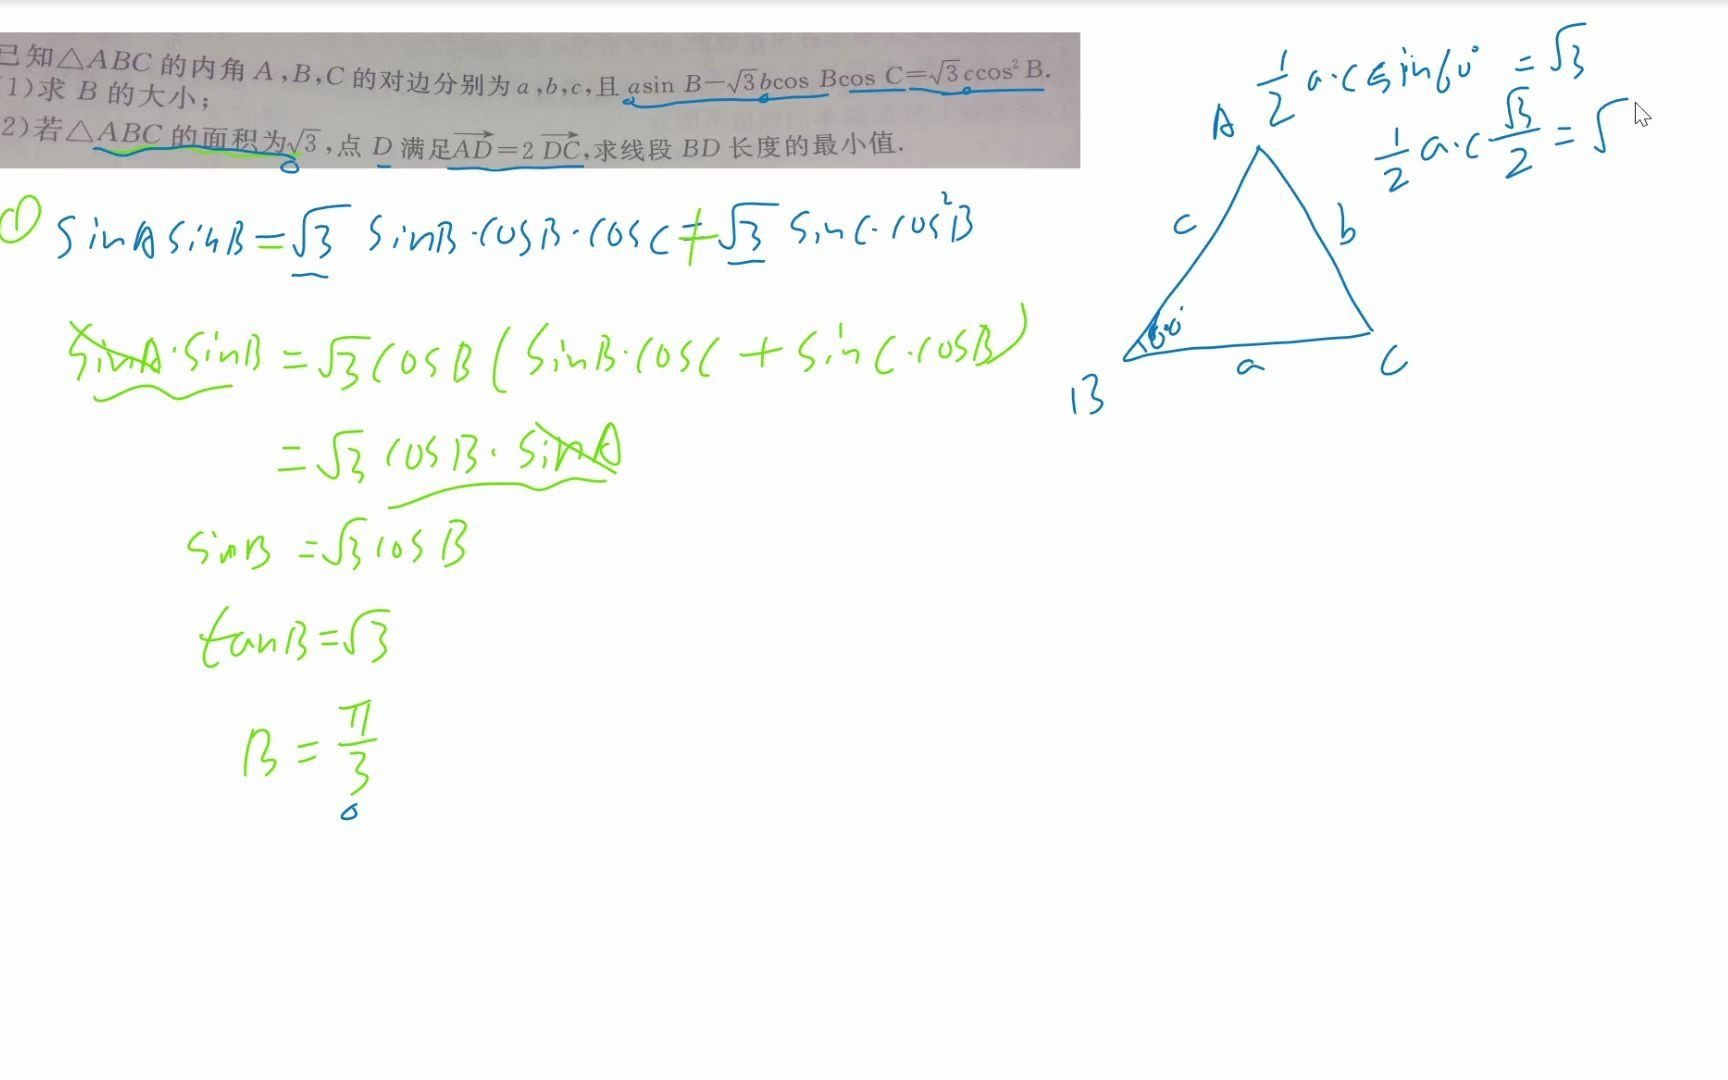 已知△ABC 的内角 A,B,C 的对边分别为 a,b,c,且 asin B-√3bcos Bcos C=√3ccos²B.
(1)求 B 的大小;
2)若△ABC 的面积为√3,点 D 满足$\overrightarrow{AD}$=2$\overrightarrow{DC}$,求线段 BD 长度的最小值.
① sinA sinB = √3 sinB·cosB·cosC + √3 sinC·cos²B
sinA·sinB = √3 cosB (sinB·cosC + sinC·cosB)
= √3 cosB·sinA
sinB = √3 cosB
tanB = √3
B = π/3
1/2 a·c sin60° = √3
1/2 a·c √3/2 = √
A
c
b
60°
B
a
C